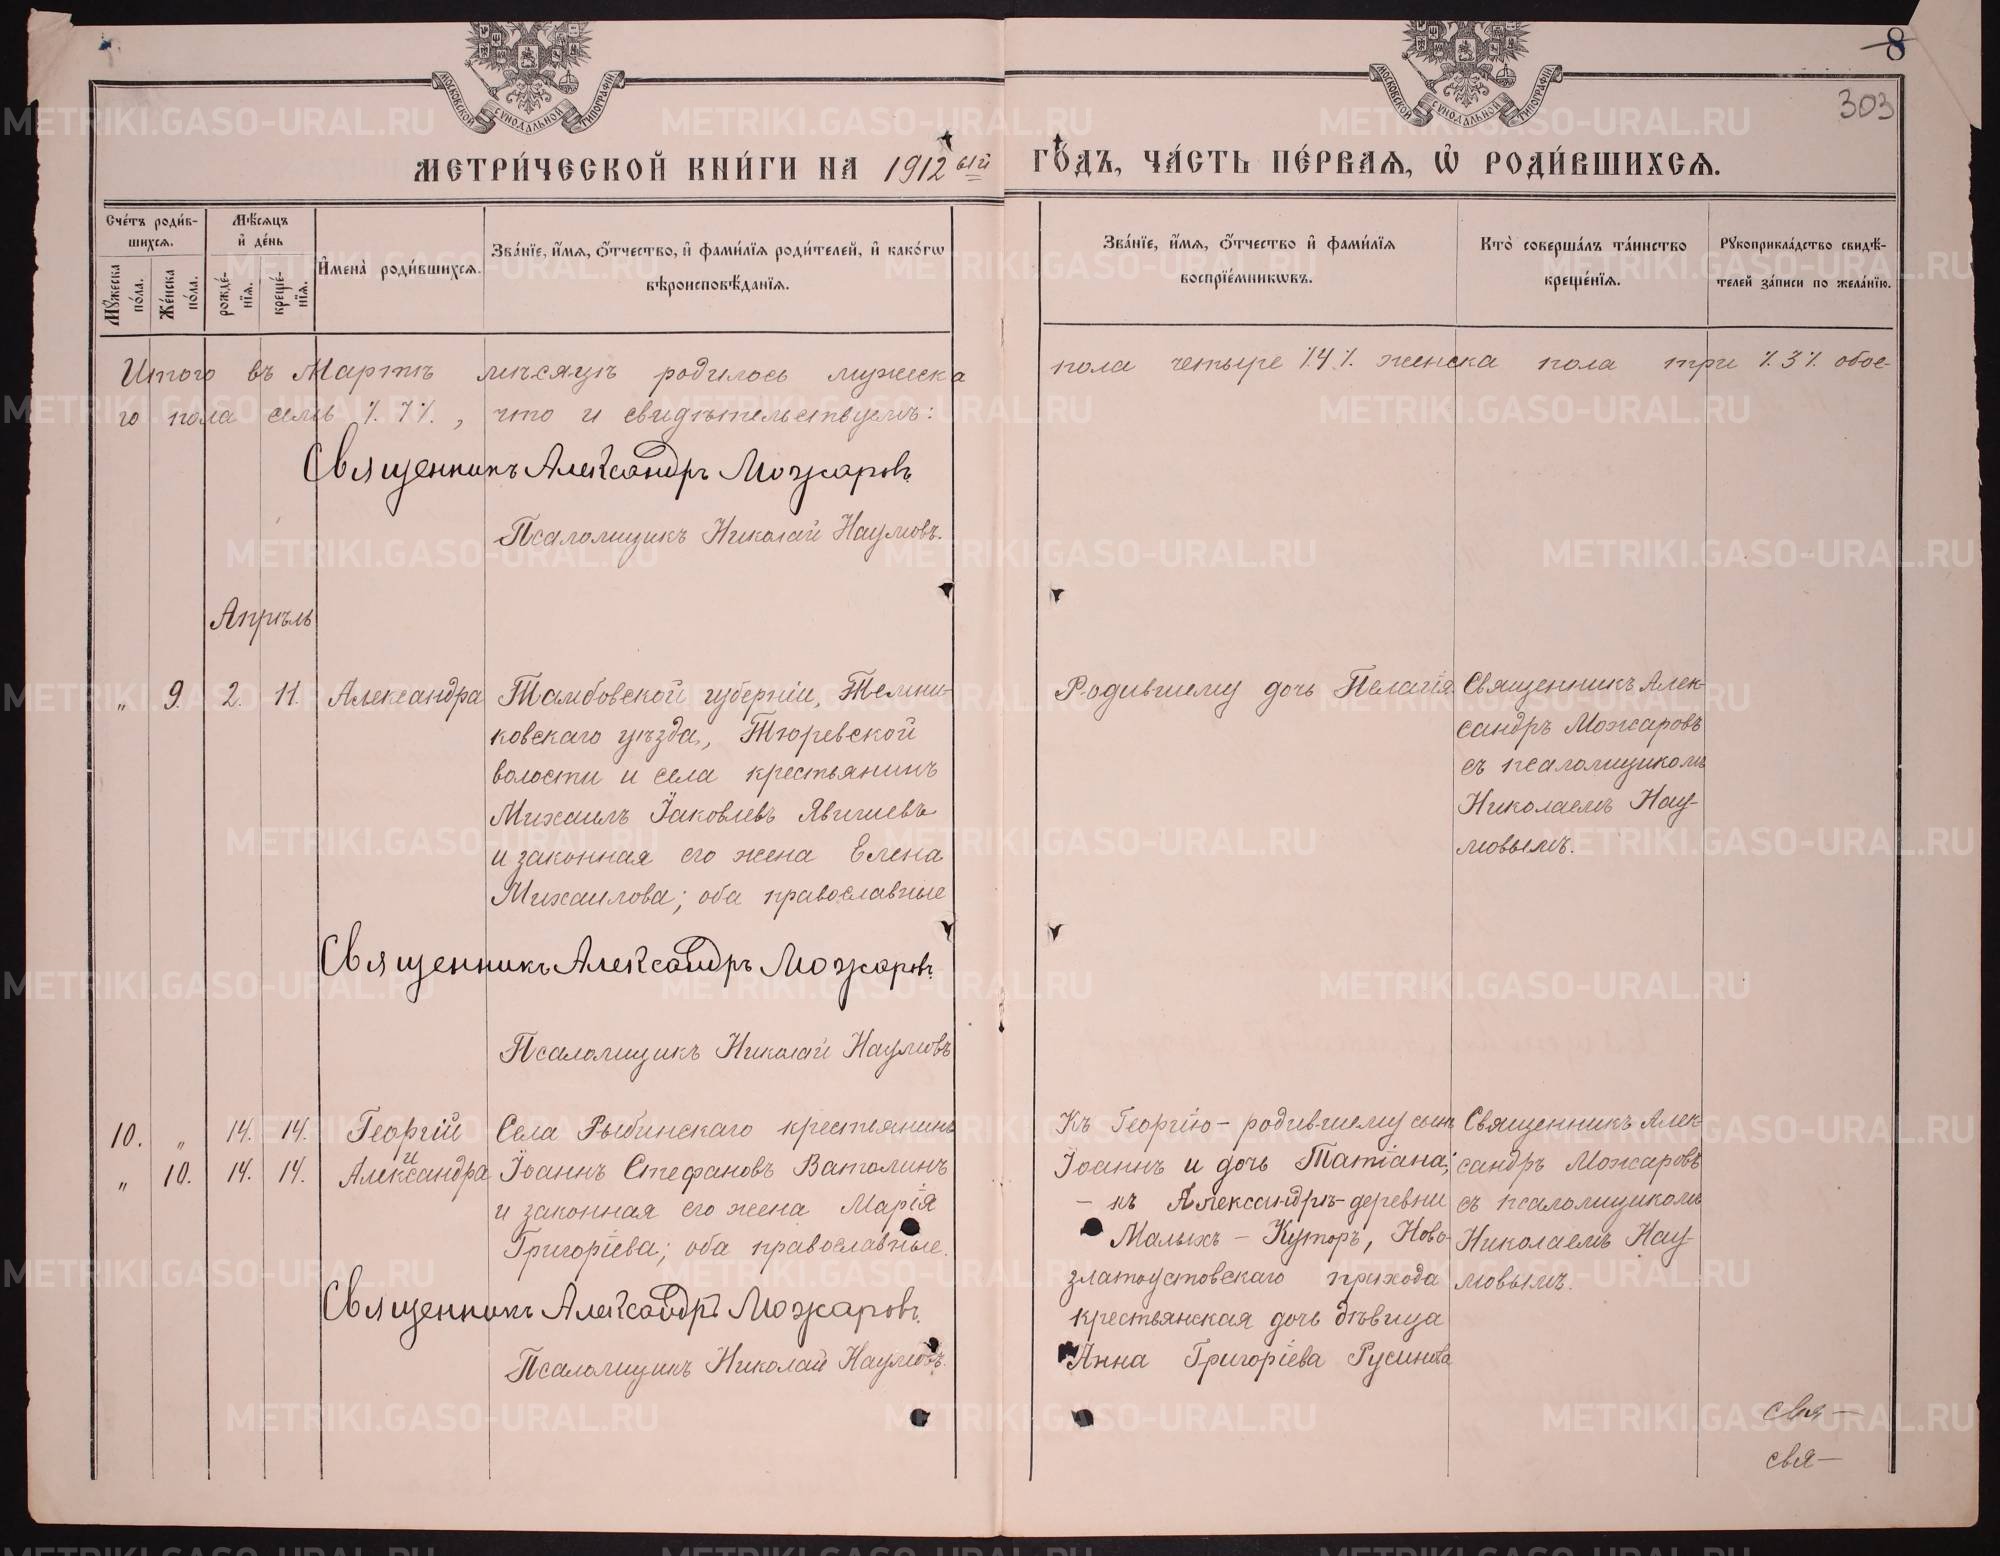 МОСКОВСКОЙ СУНОДАЛЬНОЙ ТИПОГРАФІИ
МОСКОВСКОЙ СУНОДАЛЬНОЙ ТИПОГРАФІИ
8
303
МЕТРИ́ЧЕСКОЙ КНИ́ГИ НА 1912 ый ГО́ДЪ, ЧА́СТЬ ПЕ́РВАЯ, Ѽ РОДИ́ВШИХСЯ.
Сче́тъ роди́в-
шихся.
Мꙋжеска по́ла.
Же́нска по́ла.
Мѣ́сяцъ
и҆ де́нь
рожде́-
нїя.
креще́-
нїя.
И҆мена̀ роди́вшихся.
Зва́нїе, и҆́мя, ѻ҆́тчество, и҆ фами́лїя роди́телей, и҆ како́гѡ
вѣроисповѣ́данїя.
Зва́нїе, и҆́мя, ѻ҆́тчество и҆ фами́лїя
воспрїе́мникѡвъ.
Кто̀ соверша́лъ та́инство
креще́нїя.
Рꙋкоприкла́дство свидѣ́-
телей за́писи по жела́нїю.
Итого въ Мартѣ мѣсяцѣ родилось мужеска пола четыре ⁒ 4 ⁒ женска пола три ⁒ 3 ⁒ обое-
го пола семь ⁒ 7 ⁒, что и свидѣтельствуемъ:
Священникъ Александръ Можаровъ
Псаломщикъ Николай Наумовъ.
Апрѣль
„ 9. 2. 11. Александра
Тамбовской губерніи, Темни-
ковскаго уѣзда, Тюревской
волости и села крестьянинъ
Михаилъ Іаковлевъ Явишевъ
и законная его жена Елена
Михаилова; оба православные
Родившему дочь Пелагія
Священникъ Алек-
сандръ Можаровъ
съ псаломщикомъ
Николаемъ Нау-
мовымъ.
Священникъ Александръ Можаровъ.
Псаломщикъ Николай Наумовъ
10. „ 14. 14. Георгій
и
„ 10. 14. 14. Александра
Села Рыбинскаго крестьянинъ
Іоаннъ Стефановъ Ватолинъ
и законная его жена Марія
Григоріева; оба православные.
Къ Георгію - родившему сынъ
Іоаннъ и дочь Татіана;
- къ Александрѣ - деревни
Малыхъ - Куторъ, Ново-
златоустовскаго прихода
крестьянская дочь дѣвица
Анна Григоріева Русинова
Священникъ Алек
сандръ Можаровъ
съ псаломщикомъ
Николаемъ Нау-
мовымъ.
Священникъ Александръ Можаровъ.
Псаломщикъ Николай Наумовъ.
свя-
свя-
METRIKI.GASO-URAL.RU